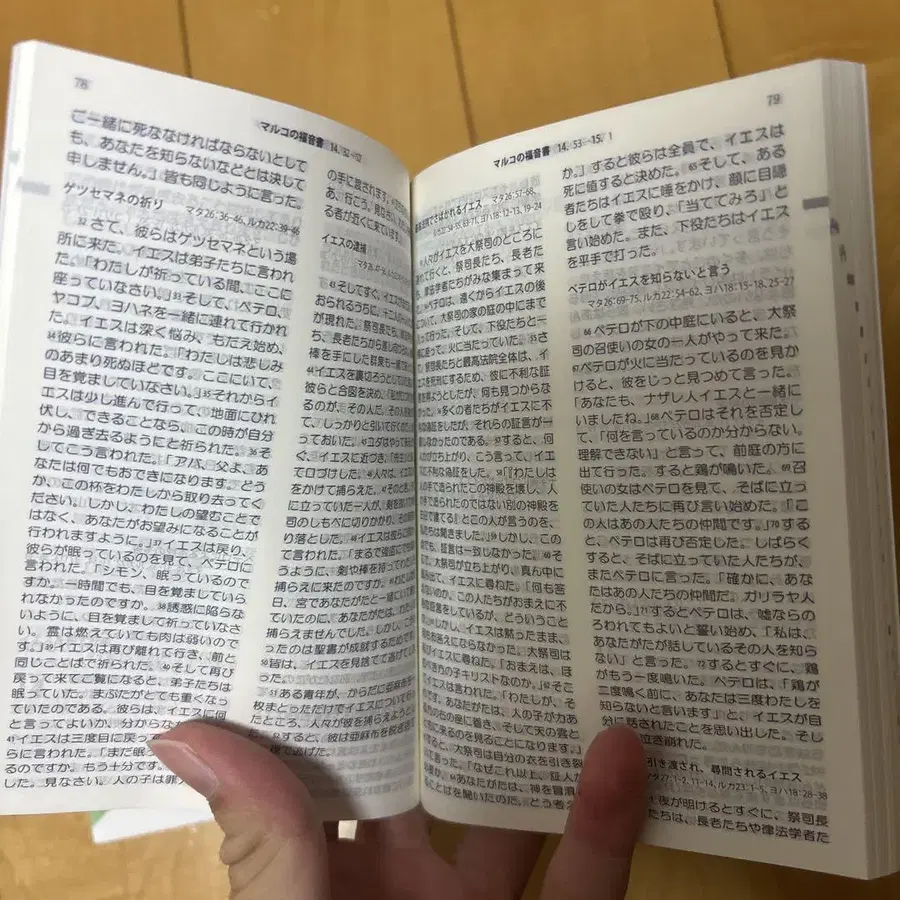 78
マルコの福音書 14, 32-52
ご一緒に死ななければならないとして
も、あなたを知らないなどとは決して
申しません。」皆も同じように言った。
ゲツセマネの祈り マタ26:36-46, ルカ22:39-46
32 さて、彼らはゲツセマネという場
所に来た。イエスは弟子たちに言われ
た。「わたしが祈っている間、ここに
座っていなさい。」33 そして、ペテロ、
ヤコブ、ヨハネを一緒に連れて行かれ
た。イエスは深く悩み、もだえ始め、
34 彼らに言われた。「わたしは悲しみ
のあまり死ぬほどです。ここにいて、
目を覚ましていなさい。」35 それからイ
エスは少し進んで行って、地面にひれ
伏し、できることなら、この時が自分
から過ぎ去るようにと祈られた。36 そ
してこう言われた。「アバ、父よ、あ
なたは何でもおできになります。どう
か、この杯をわたしから取り去ってく
ださい。しかし、わたしの望むことで
はなく、あなたがお望みになることが
行われますように。」37 イエスは戻り、
彼らが眠っているのを見て、ペテロに
言われた。「シモン、眠っているので
すか。一時間でも、目を覚ましていら
れなかったのですか。38 誘惑に陥らな
いように、目を覚まして祈っていなさ
い。霊は燃えていても肉は弱いので
す。」39 イエスは再び離れて行き、前と
同じことばで祈られた。40 そして再び
戻って来てご覧になると、弟子たちは
眠っていた。まぶたがとても重くなっ
ていたのである。彼らは、イエスに何
と言ってよいか、分からなか
41 イエスは三度目に戻って
らに言われた。「まだ眠
るのですか。もう十分です。
した。見なさい。人の子は罪
の手に渡されます。
あ、行こう。見なさい。
る者が近くに来ています。
イエスの逮捕
43 そしてすぐ、イエスが
おられるうちに、十二人の
が現れた。祭司長たち、
ち、長老たちから差し向け
棒を手にした群衆も一緒
44 イエスを裏切ろうとしてい
彼らと合図を決め、「私が
るのが、その人だ。その人を
て、しっかりと引いて行く
っておいた。45 ユダはやって
ぐ、イエスに近づき、「先生
て口づけした。46 人々は、イ
をかけて捕らえた。47 そのとき
に立っていた一人が、剣を抜
司のしもべに切りかかり、その
り落とした。48 イエスは彼らに
て言われた。「まるで強盗にでも
うように、剣や棒を持ってわたしを
捕らえに来たのですか。49 わたしは
日、宮であなたがたと一緒に
ていたのに、あなたがたは、わたし
捕らえませんでした。しかし、こう
ったのは聖書が成就するためです
50 皆は、イエスを見捨てて逃げて
51 ある青年が、からだに亜麻布
枚まとっただけでイエスについて
たところ、人々が彼を捕らえよう
52 すると、彼は亜麻布を脱ぎ捨て
で逃げた。
79
マルコの福音書 14, 53-15, 1
最高法院でさばかれるイエス マタ26:57-68,
ルカ22:54-55, 63-71, ヨハ18:12-13, 19-24
人々がイエスを大祭司のところに
連れて行くと、祭司長たち、長老た
ち、律法学者たちがみな集まって来
ペテロは、遠くからイエスの後
いて、大祭司の家の庭の中にまで
って行った。そして、下役たちと一
に座って、火に当たっていた。55 さ
祭司長たちと最高法院全体は、イ
スを死刑にするため、彼に不利な証
を得ようとしたが、何も見つからな
56 多くの者たちがイエスに不
な偽証をしたが、それらの証言が一
しなかったのである。57 すると、何
人かが立ち上がり、こう言って、イエ
に不利な偽証をした。58 「『わたしは
の手で造られたこの神殿を壊し、人
手で造られたのではない別の神殿を
日で建てる』とこの人が言うのを、
たちは聞きました。」59 しかし、この
でも、証言は一致しなかった。60 そ
で、大祭司が立ち上がり、真ん中に
み出て、イエスに尋ねた。「何も答
ないのか。この人たちがおまえに不
証言をしているが、どういうこと
61 しかし、イエスは黙ったまま、
もお答えにならなかった。大祭司は
びイエスに尋ねた。「おまえは、ほ
べき方の子キリストなのか。」62 そこ
でイエスは言われた。「わたしが、そ
です。あなたがたは、人の子が力あ
方の右の座に着き、そして天の雲と
に来るのを見ることになります。」
すると、大祭司は自分の衣を引き裂
「なぜこれ以上、証人が
64 あなたがたは、神を冒瀆
ことばを聞いたのだ。どう考え
か。」すると彼らは全員で、イエスは
死に値すると決めた。65 そして、ある
者たちはイエスに唾をかけ、顔に目隠
しをして拳で殴り、「当ててみろ」と
言い始めた。また、下役たちはイエス
を平手で打った。
ペテロがイエスを知らないと言う
マタ26:69-75, ルカ22:54-62, ヨハ18:15-18, 25-27
66 ペテロが下の中庭にいると、大祭
司の召使いの女の一人がやって来た。
67 ペテロが火に当たっているのを見か
けると、彼をじっと見つめて言った。
「あなたも、ナザレ人イエスと一緒に
いましたね。」68 ペテロはそれを否定し
て、「何を言っているのか分からない。
理解できない」と言って、前庭の方に
出て行った。すると鶏が鳴いた。69 召
使いの女はペテロを見て、そばに立っ
ていた人たちに再び言い始めた。「こ
の人はあの人たちの仲間です。」70 する
と、ペテロは再び否定した。しばらく
すると、そばに立っていた人たちが、
またペテロに言った。「確かに、あな
たはあの人たちの仲間だ。ガリラヤ人
だから。」71 するとペテロは、嘘ならの
ろわれてもよいと誓い始め、「私は、
あなたがたが話しているその人を知ら
ない」と言った。72 するとすぐに、鶏
がもう一度鳴いた。ペテロは、「鶏が
二度鳴く前に、あなたは三度わたしを
知らないと言います」と、イエスが自
分に話されたことを思い出した。そし
泣き崩れた。
引き渡され、尋問されるイエス
マタ27:1-2, 11-14, ルカ23:1-5, ヨハ18:28-38
1 夜が明けるとすぐに、祭司長
たちは、長老たちや律法学者た